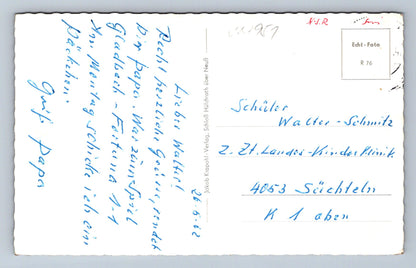 26-6-62
Lieber Walter!
Recht herzliche Grüsse, sendet
Dir papa. War zum Spiel
Gladbach - Fortuna 1-1
Am Montag schicke ich ein
Päckchen.
Gruß Papa
Jakob Krapohl-Verlag, Schloß Hülchrath über Neuß
Echt-Foto
R 76
Schüler
Walter-Schmitz
Z. Zt. Landes-Kinder Klinik
4053 Süchteln
K 1 oben